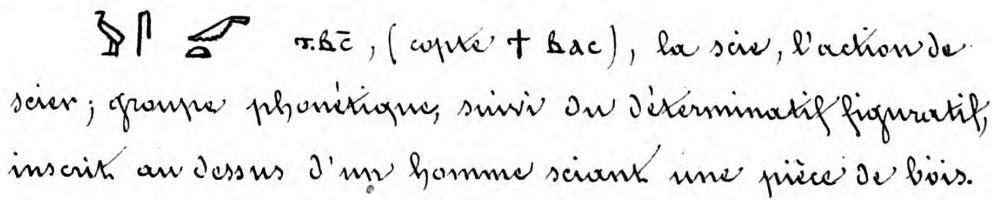 ⲧ.ⲃⲥ̄, (copte ϯ ⲃⲁⲥ), la scie, l'action de
scier; groupe phonétique, suivi du déterminatif figuratif,
inscrit au dessus d'un homme sciant une pièce de bois.